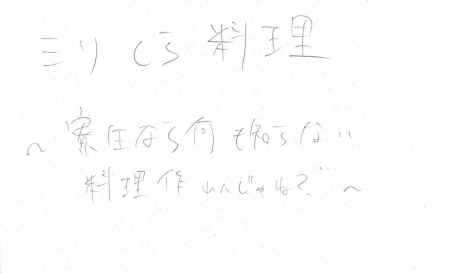 ミリしら料理
～寮圧なら何も知らない
料理作れんじゃね?～